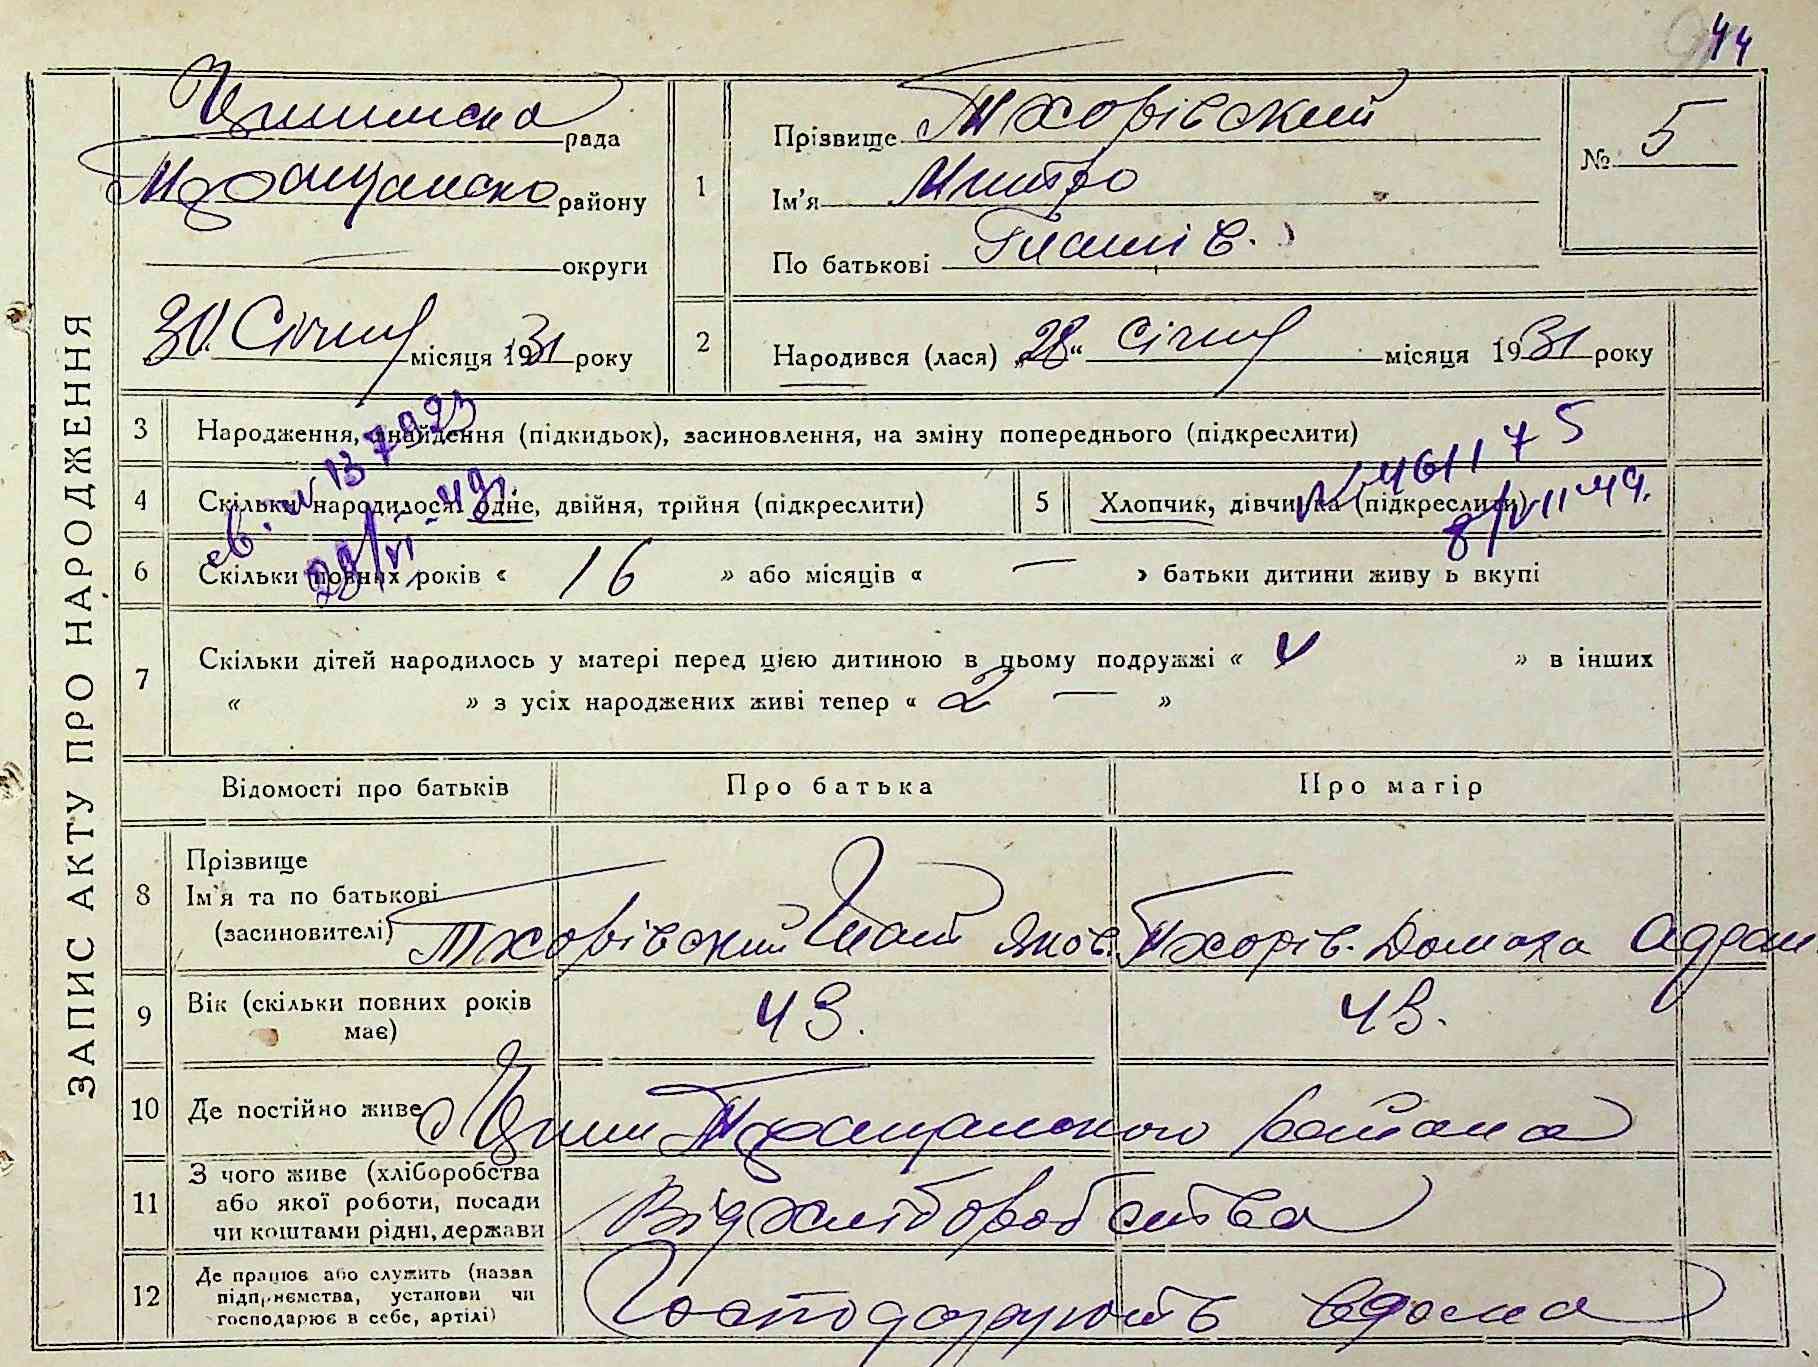 44
ЗАПИС АКТУ ПРО НАРОДЖЕННЯ
рада
району
округи
30 Січня місяця 1931 року
1
Прізвище Тхорівский
Ім'я Митро
По батькові
№ 5
2
Народився (лася) „28“ Січня місяця 1931 року
3
Народження, знайдення (підкидьок), засиновлення, на зміну попереднього (підкреслити)
4
Скільки народилося: одне, двійня, трійня (підкреслити)
5
Хлопчик, дівчинка (підкреслити)
св. № 137923
29/VI-49
№ 461175
8/VII 49.
6
Скільки повних років « 16 » або місяців « — » батьки дитини живуть вкупі
7
Скільки дітей народилось у матері перед цією дитиною в цьому подружжі « 4 » в інших
« » з усіх народжених живі тепер « 2 — »
Відомості про батьків
Про батька
Про матір
8
Прізвище
Ім'я та по батькові
(засиновителі)
Тхорівский Яков.
Тхорів. Домаха
9
Вік (скільки повних років
має)
43.
43.
10
Де постійно живе
района
11
З чого живе (хліборобства
або якої роботи, посади
чи коштами рідні, держави
Від хліборобства
12
Де працює або служить (назва
підприємства, установи чи
господарює в себе, артілі)
Господарують вдома